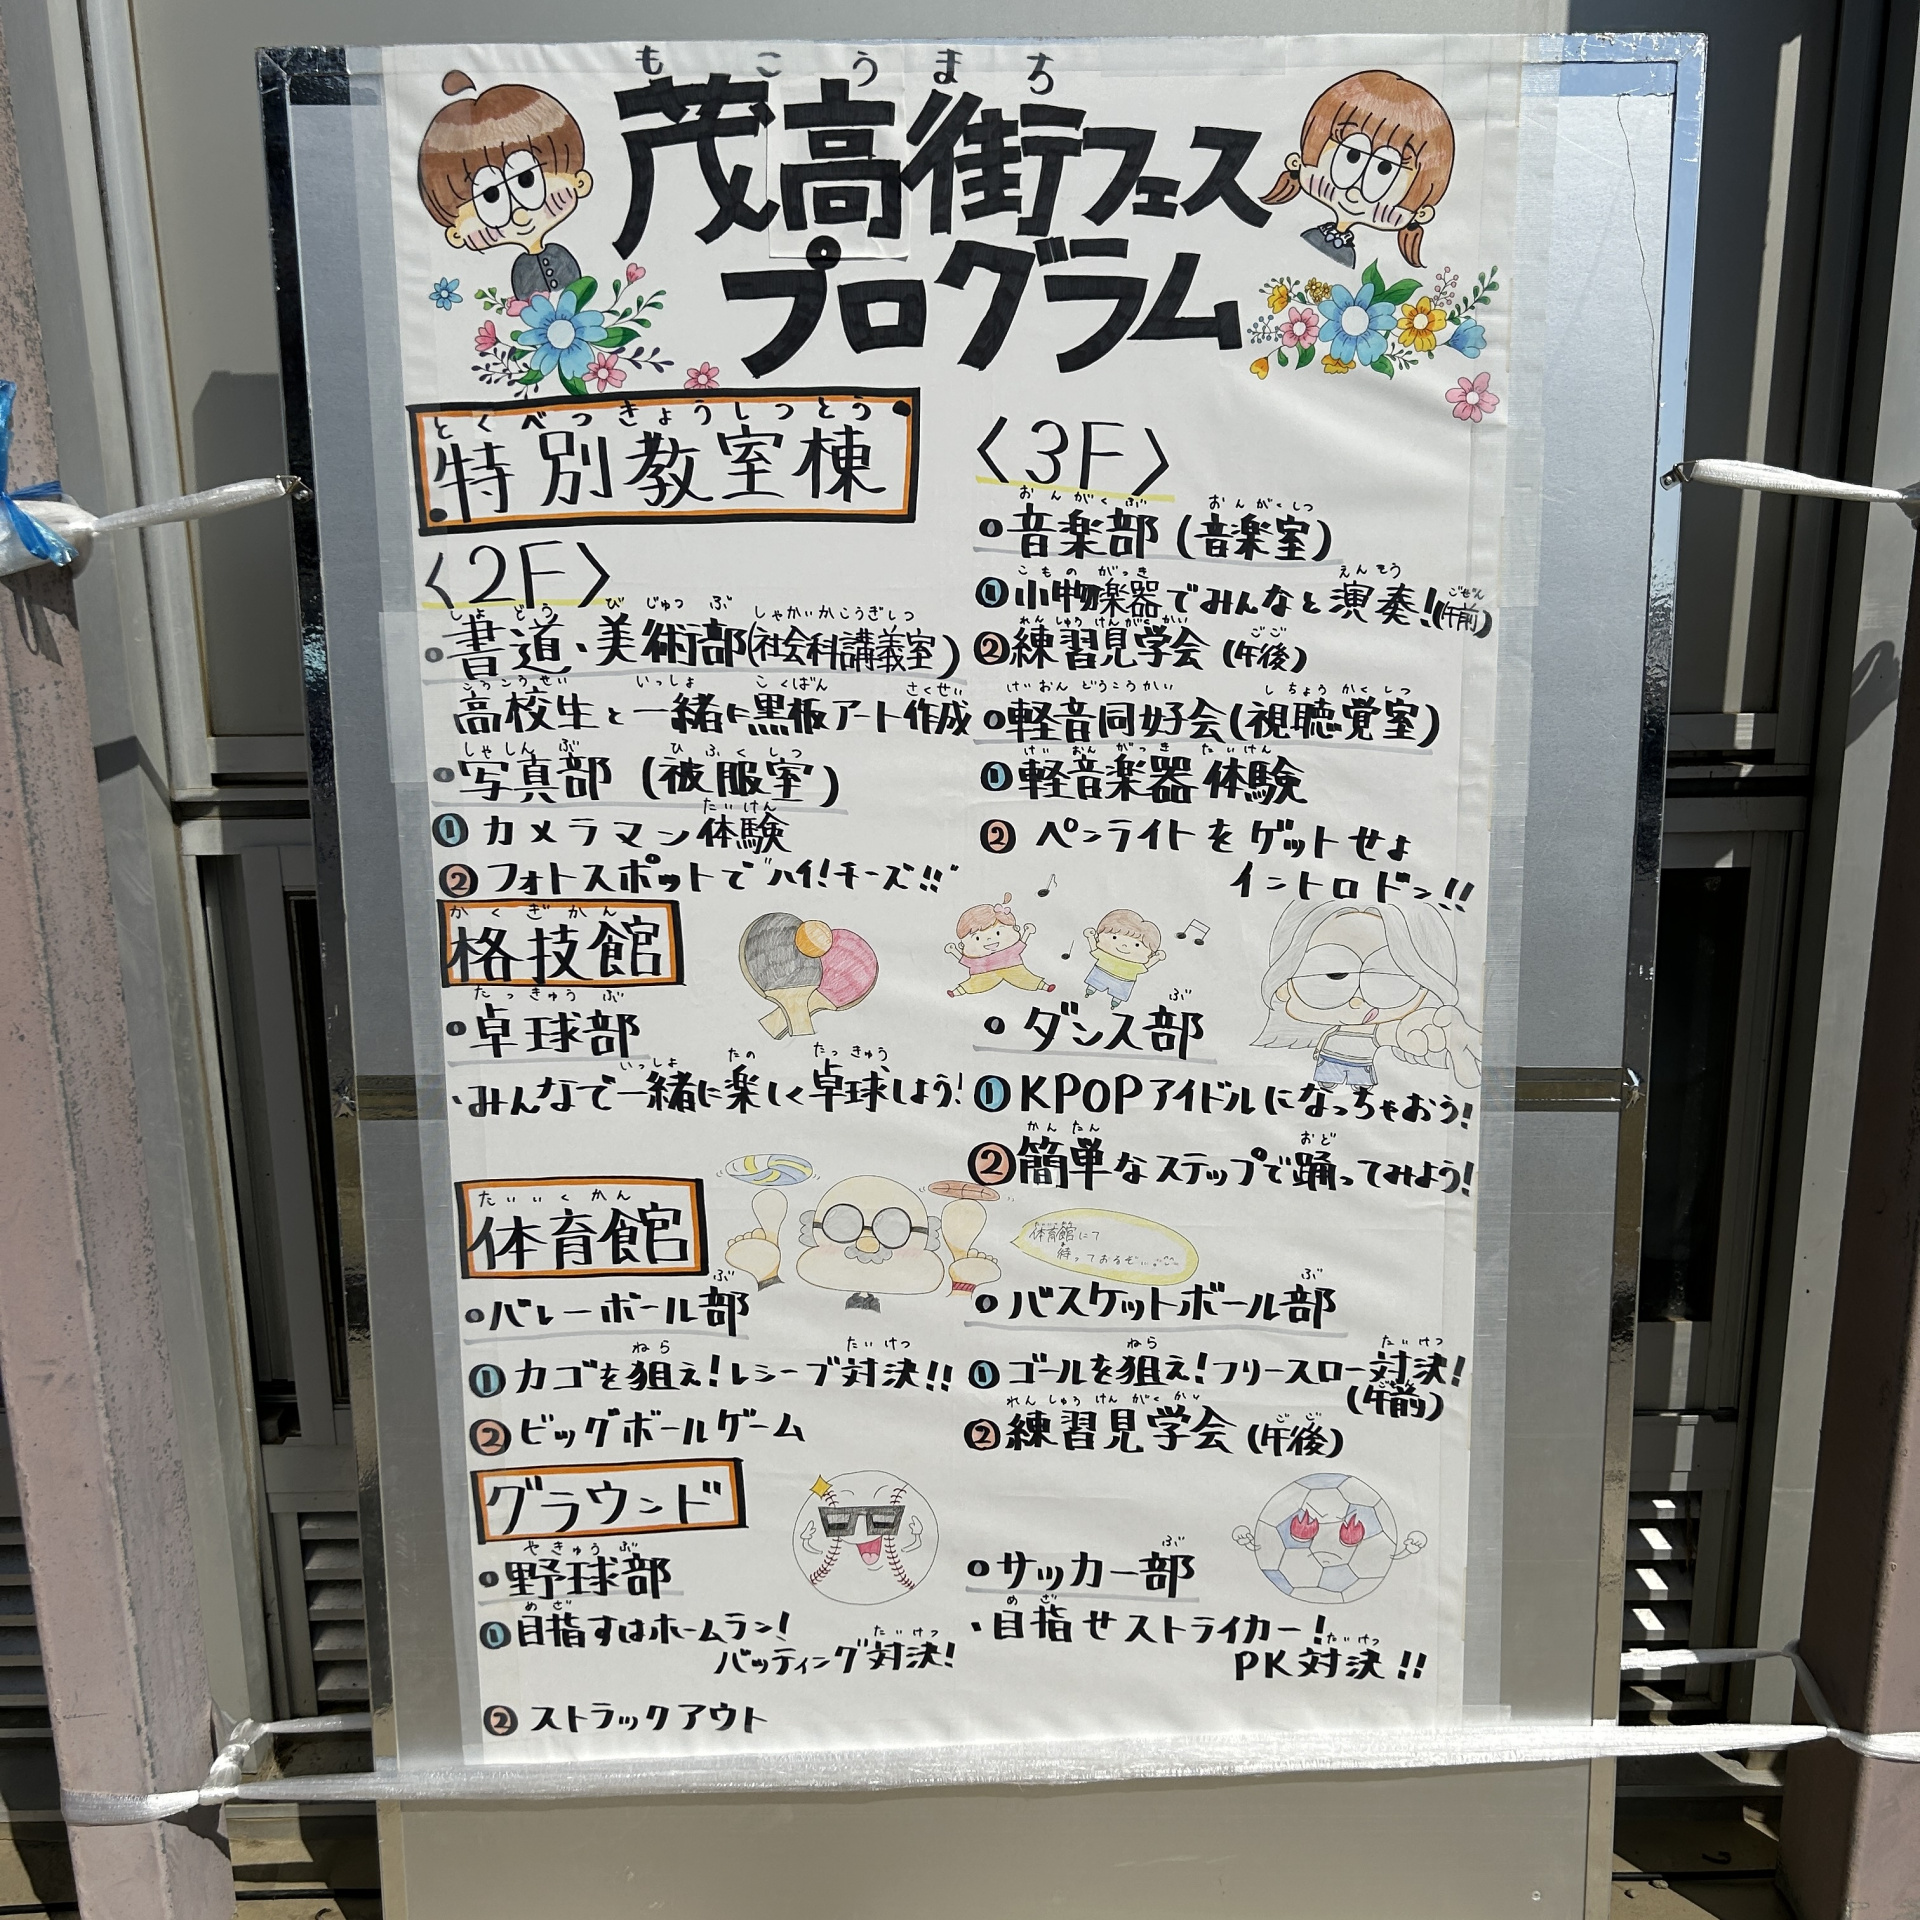 もこうまち
茂高街フェス
プログラム
とくべつきょうしつとう
特別教室棟
〈2F〉
しょどう びじゅつぶ しゃかいかこうぎしつ
書道、美術部(社会科講義室)
こうこうせい いっしょ こくばん さくせい
高校生と一緒に黒板アート作成
しゃしんぶ ひふくしつ
写真部(被服室)
たいけん
① カメラマン体験
② フォトスポットで"ハイ!チーズ!!"
〈3F〉
おんがくぶ おんがくしつ
音楽部(音楽室)
こものがっき えんそう ごぜん
①小物楽器でみんなと演奏!(午前)
れんしゅうけんがくかい ごご
②練習見学会(午後)
けいおんどうこうかい しちょうかくしつ
軽音同好会(視聴覚室)
けいおんがっきたいけん
①軽音楽器体験
② ペンライトをゲットせよ
イントロドン!!
かくぎかん
格技館
たっきゅうぶ
卓球部
いっしょ たの たっきゅう
・みんなで一緒に楽しく卓球しよう!
ぶ
ダンス部
①KPOPアイドルになっちゃおう!
かんたん おど
②簡単なステップで踊ってみよう!
たいいくかん
体育館
たいいくかん
体育館にて
ま
待っておるぞ
ぶ
バレーボール部
ねら たいけつ
①カゴを狙え!レシーブ対決!!
②ビッグボールゲーム
ぶ
バスケットボール部
ねら たいけつ
①ゴールを狙え!フリースロー対決!
ごぜん
(午前)
れんしゅうけんがくかい ごご
②練習見学会(午後)
グラウンド
やきゅうぶ
野球部
めざ
①目指すはホームラン!
たいけつ
バッティング対決!
② ストラックアウト
ぶ
サッカー部
めざ
・目指せストライカー!
たいけつ
PK対決!!